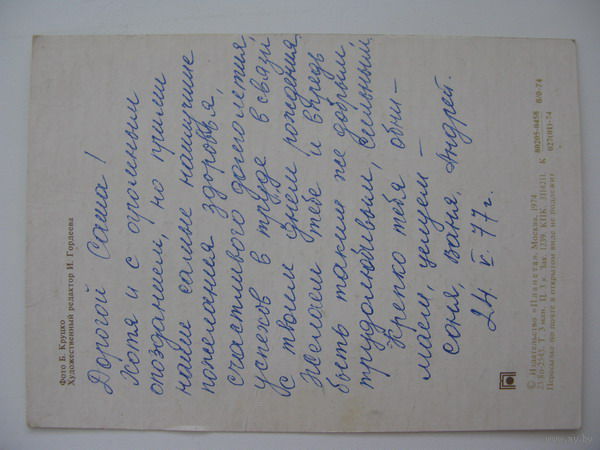 Фото Б. Круцко
Художественный редактор И. Гордеева
Дорогой Саша!
Хотя и с огромным
опозданием, но прими
наши самые наилучшие
пожелания здоровья,
счастливого долголетия,
успехов в труде в связи
с твоим днем рождения.
Желаем тебе и впредь
быть таким же добрым,
трудолюбивым, сильным.
Крепко тебя обни-
маем, целуем –
Соня, Ваня, Андрей.
24. V. 77 г.
© Издательство «Планета». Москва, 1974
Т. 3 млн. Ц. 3 к. Зак. 1259. КПК 314211. К 80205-0458 027(01)-74 б/о-74
Пересылке по почте в открытом виде не подлежит
www.ay.by